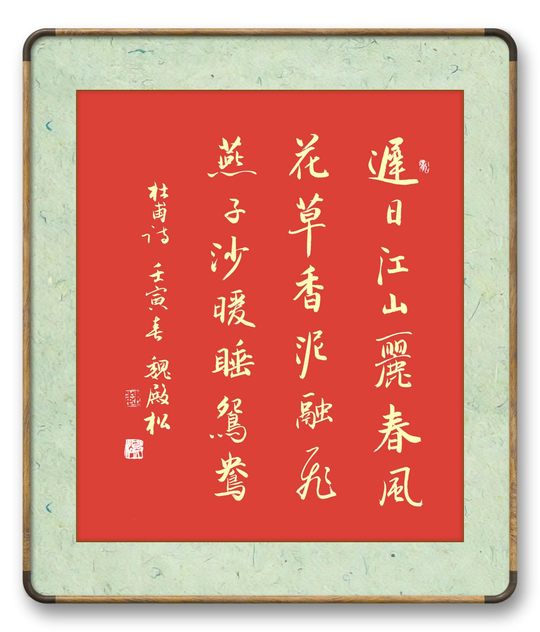 遲日江山麗春風
花草香泥融飛
燕子沙暖睡鴛鴦
杜甫诗 壬寅春 魏殿松